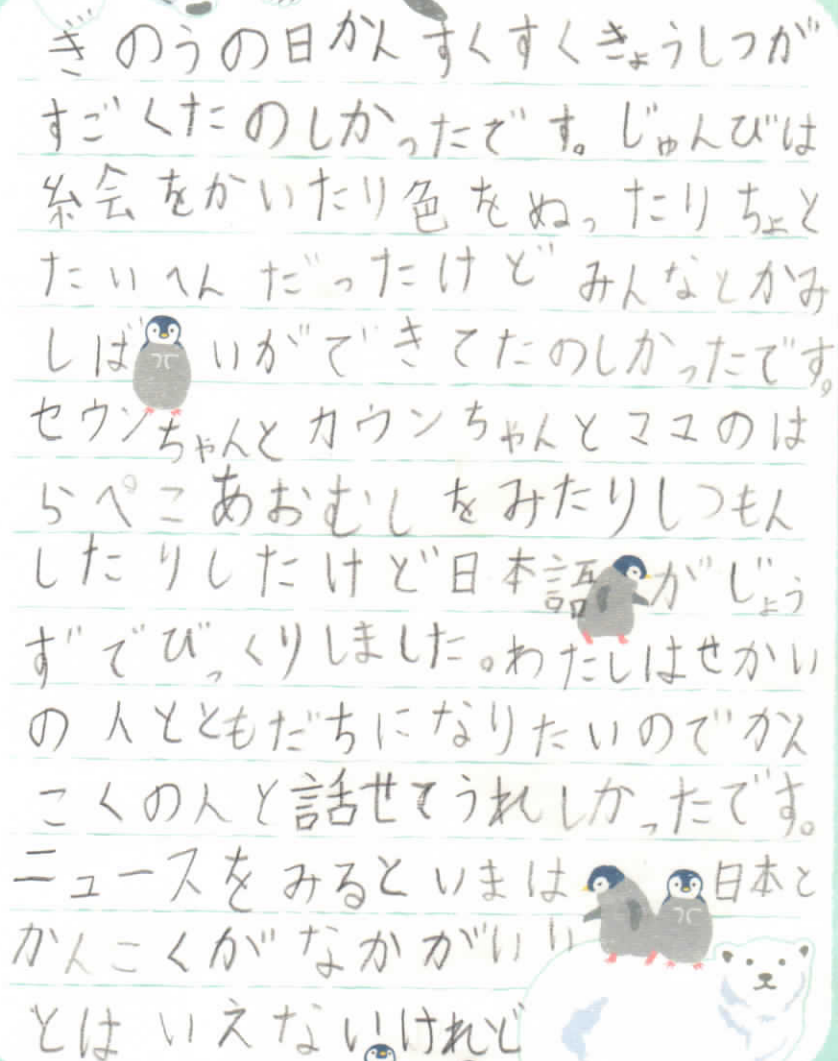 きのうの日かんすくすくきょうしつが
すごくたのしかったです。じゅんびは
絵をかいたり色をぬったりちょと
たいへんだったけどみんなとかみ
しばいができてたのしかったです。
セウンちゃんとカウンちゃんとママのは
らぺこあおむしをみたりしつもん
したりしたけど日本語がじょう
ずでびっくりしました。わたしはせかい
の人とともだちになりたいのでかん
こくの人と話せてうれしかったです。
ニュースをみるといまは日本と
かんこくがなかがいい
とはいえないけれど